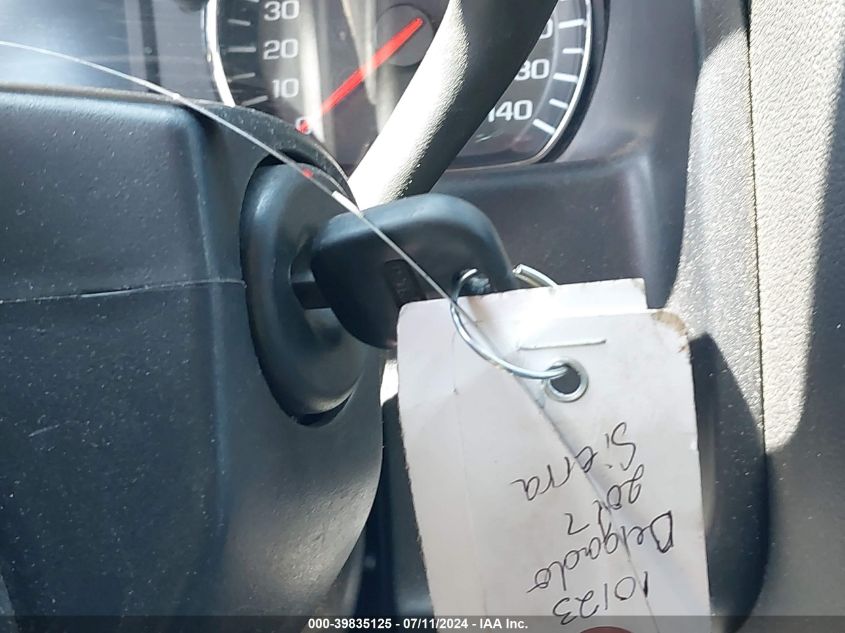 30
20
10
0
140
10123
Delgado
2017
Sierra
000-39835125 - 07/11/2024 - IAA Inc.